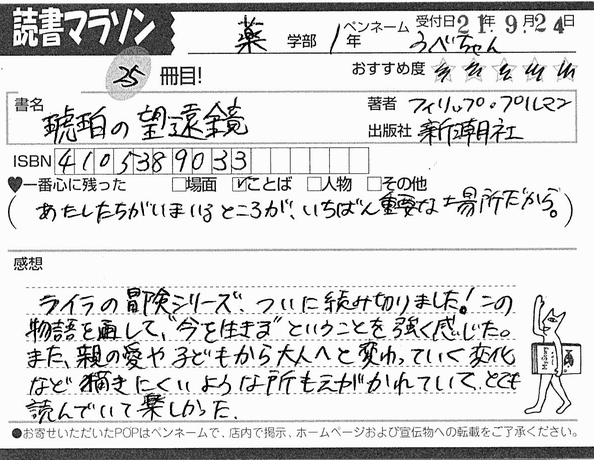 読書マラソン
薬 学部 1年 ペンネーム うべちゃん 受付日21年9月24日
25 冊目! おすすめ度 ☆☆☆☆☆
書名 琥珀の望遠鏡 著者 フィリップ・プルマン
出版社 新潮社
ISBN 4105389033
♥一番心に残った □場面 ☑ことば □人物 □その他
(あたしたちがいまいるところが、いちばん重要な場所だから。)
感想
ライラの冒険シリーズ、ついに読み切りました!この
物語を通して、"今を生きる"ということを強く感じた。
また、親の愛や子どもから大人へと変わっていく変化
など描きにくいような所もえがかれていて、とても
読んでいて楽しかった.
●お寄せいただいたPOPはペンネームで、店内で掲示、ホームページおよび宣伝物への転載をご了承ください。